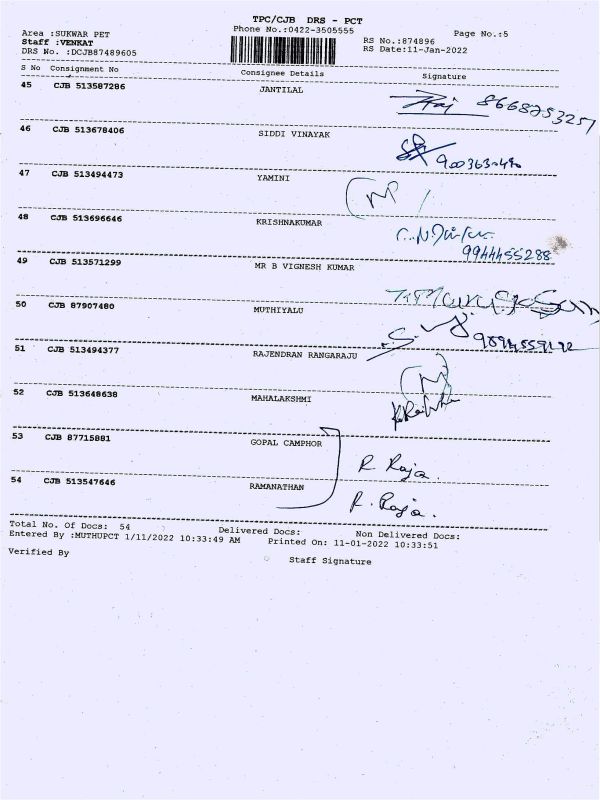 TPC/CJB DRS - PCT
Phone No.:0422-3505555
Page No.:5
Area :SUKWAR PET
Staff :VENKAT
DRS No. :DCJB87489605
RS No.:874896
RS Date:11-Jan-2022
S No Consignment No Consignee Details Signature
45 CJB 513587286 JANTILAL
8668253257
46 CJB 513678406 SIDDI VINAYAK
47 CJB 513494473 YAMINI
M
48 CJB 513696646 KRISHNAKUMAR
9944455288
49 CJB 513571299 MR B VIGNESH KUMAR
50 CJB 87907480 MUTHIYALU
51 CJB 513494377 RAJENDRAN RANGARAJU
M
52 CJB 513648638 MAHALAKSHMI
53 CJB 87715881 GOPAL CAMPHOR
R Raja.
54 CJB 513547646 RAMANATHAN
R. Raja.
Total No. Of Docs: 54 Delivered Docs: Non Delivered Docs:
Entered By :MUTHUPCT 1/11/2022 10:33:49 AM Printed On: 11-01-2022 10:33:51
Verified By
Staff Signature